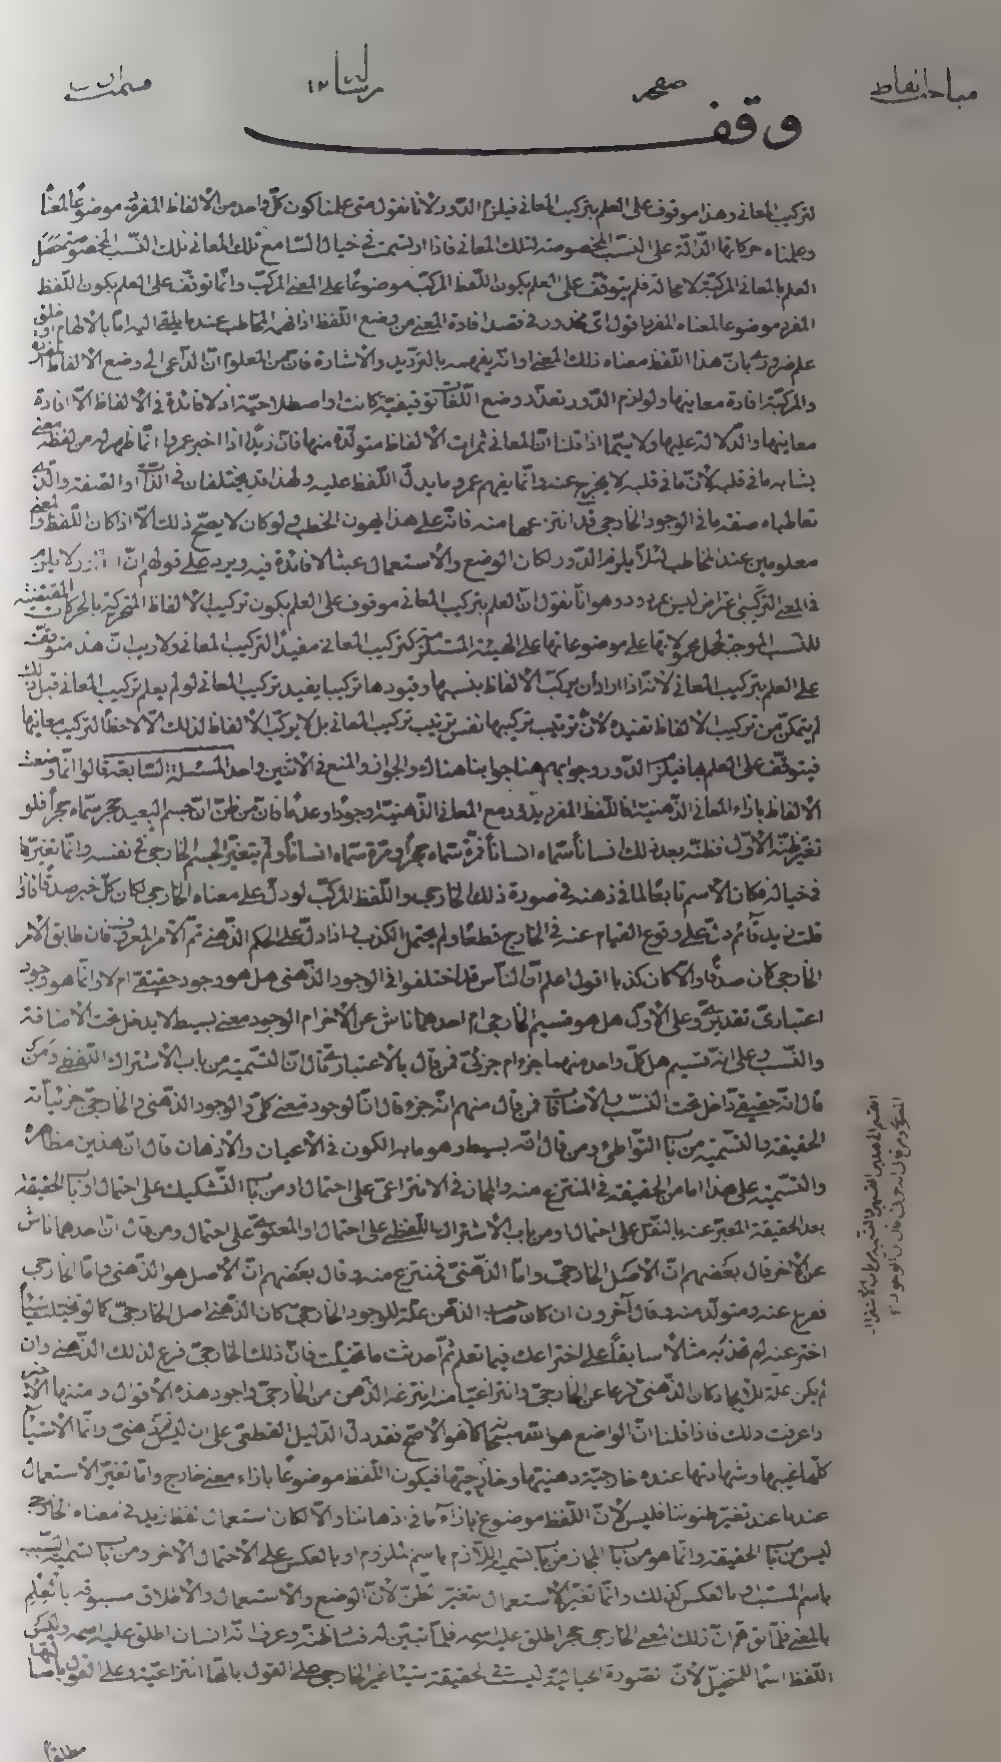 مباحث الفاظ صفحه رسالة ١٢
وقف
لتركيب المعانى وهذا موقوف على العلم بتركيب المعانى فيلزم الدّور لانا نقول متى علمنا كون كلّ واحد من الألفاظ المفردة موضوعًا لمعناه
وعلمنا حركاتها الدّالّة على النّسب المخصوصة لتلك المعانى فاذا ارتسمت فى خيال السّامع تلك المعانى بتلك النّسب المخصوصة حصل
العلم بالمعانى المركّبة لا محالة فلم يتوقّف على العلم بكون اللّفظ المركّب موضوعًا على المعنى المركّب وانّما توقّف على العلم بكون اللّفظ
المفرد موضوعا لمعناه المفرد اقول اىّ محذور فى قصد افادة المعنى من وضع اللّفظ اذا فهمه المخاطب عندما يلقى اليه امّا بالالهام او خلق
علم ضرورىّ بانّ هذا اللّفظ معناه ذلك المعنى او انّه يفهمه بالتّرديد والاشارة فانّ من المعلوم انّ الدّاعى الى وضع الألفاظ المفردة
والمركّبة افادة معانيها ولو لزم الدّور تعذّر وضع اللّغات توقيفيّة كانت او اصطلاحيّة اذ لا فائدة فى الألفاظ الّا افادة
معانيها والدّلالة عليها ولا سيّما اذا قلنا انّ المعانى ثمرات الألفاظ متولّدة منها فانّ زيدًا اذا اخبر عمروا انّما ظهر له من لفظه معنى
يشابه ما فى قلبه لأنّ ما فى قلبه لا يخرج عنه وانّما يفهم عمرو ما يدلّ اللّفظ عليه ولهذا قد يختلفان فى الذّات او الصّفة والّذى
تعاطياه صفة ما فى الوجود الخارجى قد انتزعها منه فانّه على هذا يهون الخطب ولو كان لا يصحّ ذلك الّا اذا كان اللّفظ والمعنى
معلومين عند المخاطب لئلّا يلزم الدّور لكان الوضع والاستعمال عبثا لا فائدة فيه ويرد على قولهم انّ الدّور لا يلزم
فى المعنى التّركيبى اعتراض ليس بمردود وهو انّا نقول انّ العلم بتركيب المعانى موقوف على العلم بكون تركيب الألفاظ المتحركة بالحركات المقتضية
للنّسب الموجبة لحمل محمولاتها على موضوعاتها على الهيئة المستلزمة لتركيب المعانى مفيدًا لتركيب المعانى ولا ريب انّ هذا متوقّف
على العلم بتركيب المعانى لانّه اذا اراد ان يركّب الألفاظ بنسبها وقيودها تركيبا يفيد تركيب المعانى لو لم يعلم تركيب المعانى قبل ذلك
لم يتمكّن من تركيب الألفاظ تفيده لأنّ ترتيب تركيبها نفس ترتيب تركيب المعانى بل لا يركّب الألفاظ لذلك الّا لاحظًا لتركيب معانيها
فيتوقّف على العلم بها فيلزم الدّور وجوابهم هنا جوابنا هناك والجواز والمنع فى الاثنين واحد المسئلة السّابعة قالوا انّما وضعت
الألفاظ بازاء المعانى الذّهنيّة فاللّفظ المفرد يدور مع المعانى الذّهنيّة وجودًا وعدمًا فانّ من ظنّ انّ جسم البعيد حجر سمّاه حجرًا فلو
تغيّر ظنّه الأوّل فظنّه بعد ذلك انسانًا سمّاه انسانًا فمرّة سمّاه حجرًا ومرّة سمّاه انسانًا ولم يتغيّر الجسم الخارجى فى نفسه وانّما تغيّر ما
فى خياله فكان الاسم تابعًا لما فى ذهنه فى صورة ذلك الخارجى واللّفظ المركّب لو دلّ على معناه الخارجى لكان كلّ خبر صدقًا فاذا
قلت زيد قائم دلّ على وقوع القيام عنه فى الخارج قطعًا ولم يحتمل الكذب واذا دلّ على الحكم الذّهنى تمّ الأمر المعروف فان طابق الأمر
الخارجى كان صدقًا والّا كان كذبا اقول اعلم انّ النّاس قد اختلفوا فى الوجود الذّهنى هل هو وجود حقيقى ام لا وانّما هو وجود
اعتبارىّ تقديرىّ وعلى الأوّل هل هو قسيم الخارجى ام احدهما ناش عن الآخر ام الوجود معنى بسيط لا يدخل تحت الاضافة
والنّسب وعلى انّه قسيم هل كلّ واحد منهما جزء ام جزئىّ فمن قال بالاعتبارىّ قال انّ التّسمية من باب الاشتراك اللّفظى ومن
قال انّه حقيقىّ داخل تحت النّسب والاضافات فمن قال منهم انّه جزء قال انّ الوجود معنى كلىّ والوجود الذّهنى والخارجىّ جزئيّاته
الحقيقة والتّسمية من باب التّواطئ ومن قال انّه بسيط وهو ما به الكون فى الأعيان والأذهان قال انّ هذين مظاهره
والتّسمية على هذا امّا من الحقيقة فى المنتزع منه والمجاز فى الانتزاعىّ على احتمال او من باب التّشكيك على احتمال او باب الحقيقة
بعد الحقيقة المعبّر عنه بالنّقل على احتمال او من باب الاشتراك اللّفظى على احتمال او المعنوىّ على احتمال ومن قال انّ احدهما ناش
عن الآخر قال بعضهم انّ الأصل الخارجىّ وامّا الذّهنىّ فمنتزع منه وقال بعضهم انّ الأصل هو الذّهنى وامّا الخارجى
ففرع عنه ومتولّد منه وقال آخرون ان كان صاحب الذّهن علّة للوجود الخارجىّ كان الذّهنى اصل الخارجىّ كما لو تخيّلت شيئًا
اخترعته لم تحذ به مثالًا سابقًا على اختراعك فيما تعلم ثمّ احدثت ما تخيّلت فانّ ذلك الخارجىّ فرع لذلك الذّهنى وان
لم يكن علّة للايجاد كان الذّهنىّ فرعا عن الخارجىّ وانتزاعيًّا منه انتزعه الذّهن من الخارجىّ واجود هذه الأقوال ومتنها الأخير
اذا عرفت ذلك فاذا قلنا انّ الواضع هو اللّه سبحانه كما هو الأصحّ فقد دلّ الدّليل القطعى على ان ليس له ذهنىّ وانّما الأشياء
كلّها غيبها وشهادتها عنده خارجيّة ذهنيّتها وخارجيّتها فيكون اللّفظ موضوعًا بازاء معنى خارج وامّا تغيّر الاستعمال
عندنا عند تغيّر ظنوننا فليس لأنّ اللّفظ موضوع بازاء ما فى اذهاننا والّا لكان استعمال لفظ زيد فى معناه الخارجى
ليس من باب الحقيقة وانّما هو من باب المجاز من باب تسمية اللّازم باسم الملزوم او بالعكس على الاحتمال الآخر ومن باب تسمية السّبب
باسم المسبّب او بالعكس كذلك وانّما تغيّر الاستعمال بتغيّر الظّنّ لأنّ الوضع والاستعمال والاطلاق مسبوقة بالعلم
بالمعنى فلمّا توهّم انّ ذلك المعنى الخارجى حجر اطلق عليه اسمه فلمّا تبيّن له فساد ظنّه وعرف انّه انسان اطلق عليه اسمه وليس
اللّفظ اسمًا للمتخيّل لأنّ الصّورة الخياليّة ليست فى الحقيقة شيئا غير الخارجى على القول بانّها انتزاعيّة وعلى القول بانّها
مطلقا